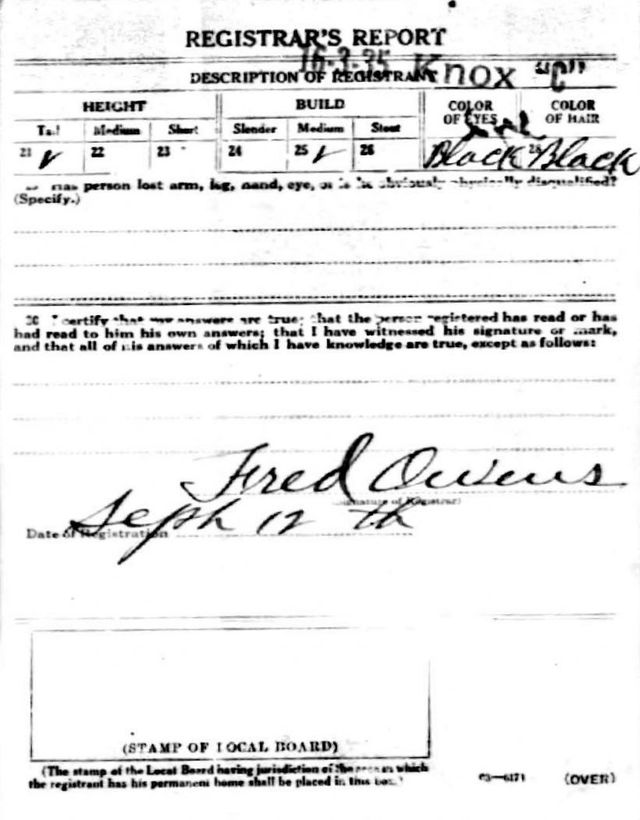 REGISTRAR'S REPORT
16-3-35 Knox "C"
DESCRIPTION OF REGISTRANT
HEIGHT BUILD COLOR OF EYES COLOR OF HAIR
Tall Medium Short Slender Medium Stout
21 ✓ 22 23 24 25 ✓ 26 Black 28 Black
Has person lost arm, leg, hand, eye, or is he obviously physically disqualified?
(Specify.)
30 I certify that my answers are true; that the person registered has read or has
had read to him his own answers; that I have witnessed his signature or mark,
and that all of his answers of which I have knowledge are true, except as follows:
Fred Owens
(Signature of Registrar)
Date of Registration Seph 12 th
(STAMP OF LOCAL BOARD)
(The stamp of the Local Board having jurisdiction of the area in which
the registrant has his permanent home shall be placed in this box.)
03—6171 (OVER)